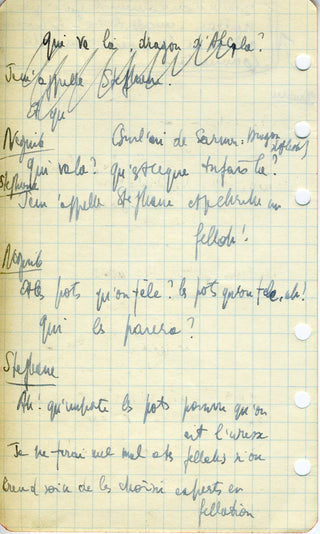 qui va là, dragon d'Alcala?
Je m'appelle Stephane.
Et qu
Neguib C'est l'ami de Dragon
qui va là? qu'est ce que tu fais là?
Stephane
Je m'appelle Stephane et je cherche un
fellah!
Neguib
et les pots qu'on fêle? les pots qu'on fêle, ah!
qui les paiera?
Stephane
Ah! qu'importe les pots pourvu qu'on
ait l'ivresse
Je ne ferai nul mal à tes fellahs si on
prend soin de les choisir experts en
fellation